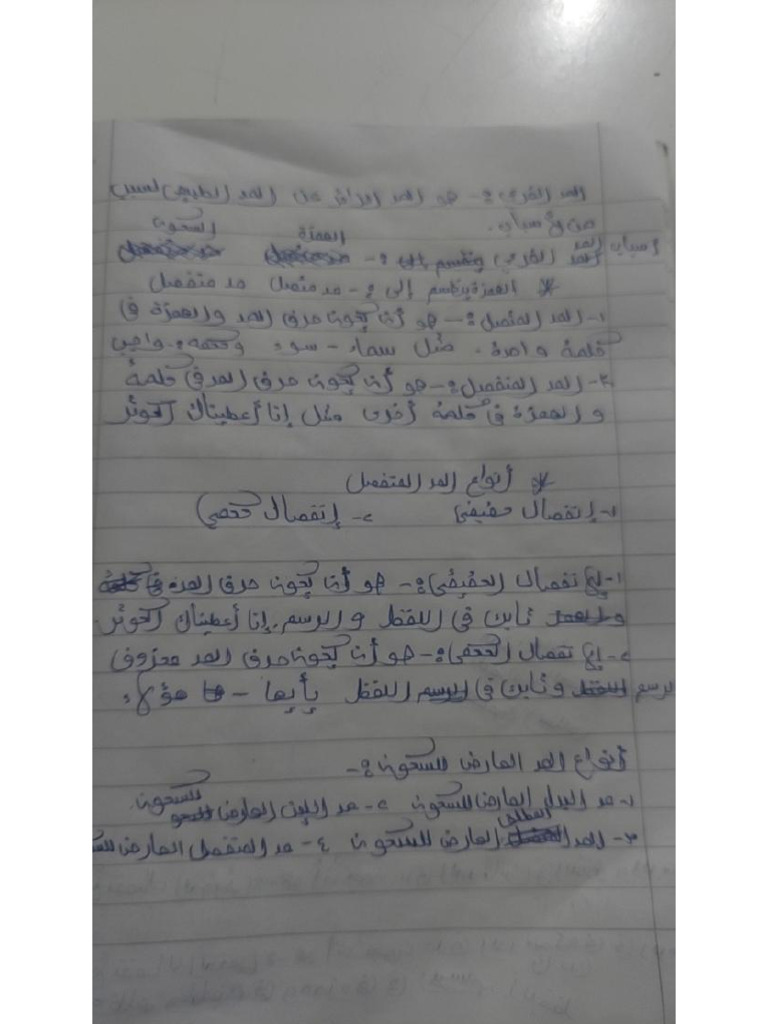 المد الفرعي :- هو المد الزائد على المد الطبيعي لسبب
من الأسباب.
الهمزة السكون
اسباب المد الفرعي
* الهمزة ينقسم إلى :- مد متصل مد منفصل
١- المد المتصل :- هو أن يكون حرف المد والهمزة في
كلمة واحدة. مثل سماء - سوء وحكمه واجب
٢- المد المنفصل :- هو أن يكون حرف المد في كلمة
والهمزة في كلمة أخرى مثل إنا أعطيناك الكوثر
* أنواع المد المنفصل
١- إنفصال حقيقي ٢- إنفصال حكمي
١- إنفصال الحقيقي :- هو أن يكون حرف المد
ثابت في اللفظ و الرسم. إنا أعطيناك الكوثر
٢- إنفصال الحكمي :- هو أن يكون حرف المد محزوف
الرسم و ثابت في اللفظ يأيها - هؤلاء
أنواع المد العارض للسكون :-
١- مد البدل العارض للسكون ٢- مد اللين العارض للسكون
٣- المد العارض للسكون ٤- مد المتصل العارض